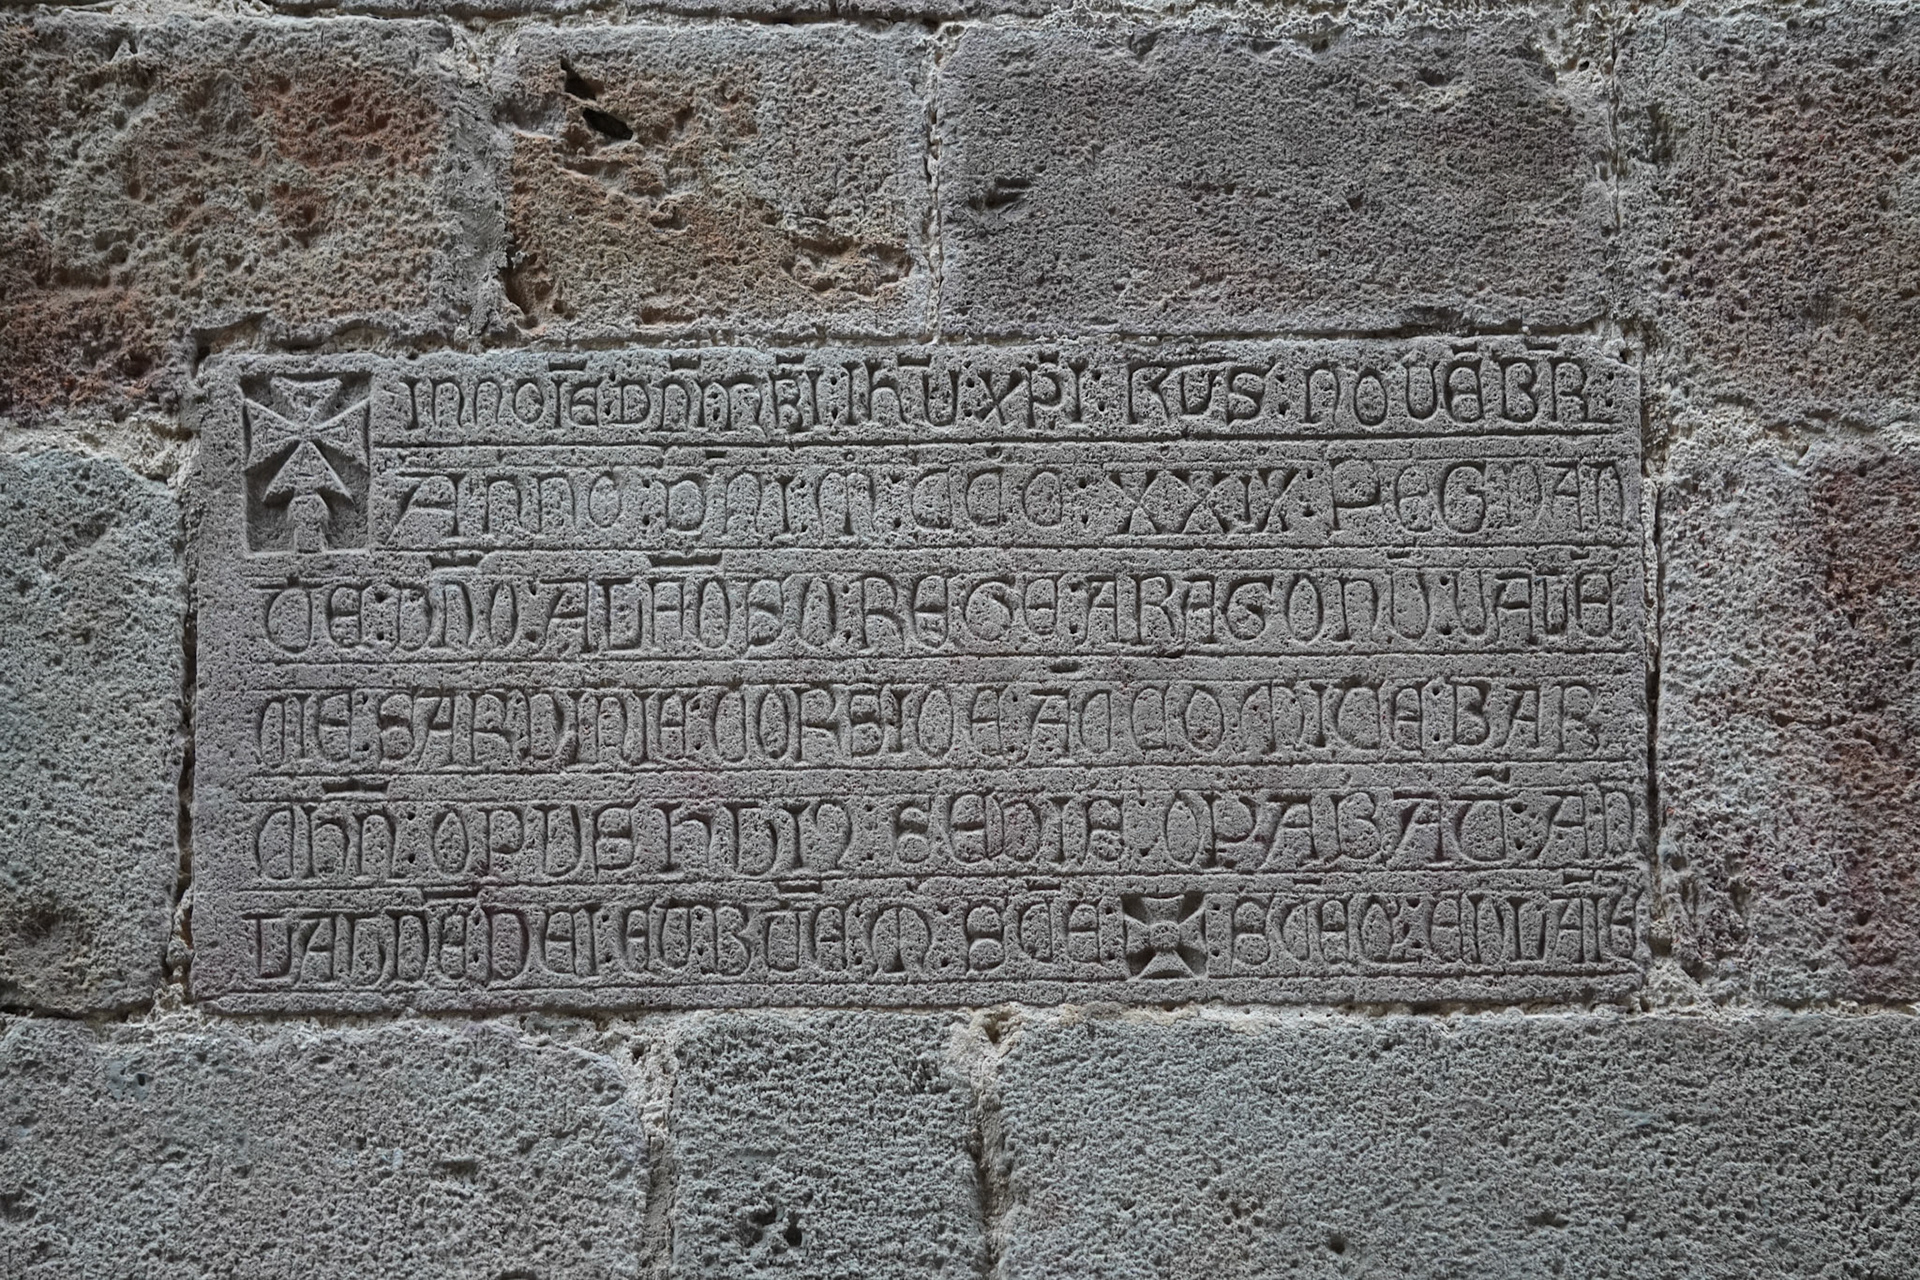 INNOIE : DNI NRI : IHU : XPI : KLS : NOVEBR :
ANNO : DNI M : CCC : XXIX : REGNAN
TE DNO : ALFOSO : REGE : ARAGONU : VALE
CIE : SARDINIE CORSICE : AC COMITE : BAR
CHN : OPUS HUI SEDIS : OPABAT : AD
LAUDE : DEI : ET B TE M : SCE SCEQ EULALIE